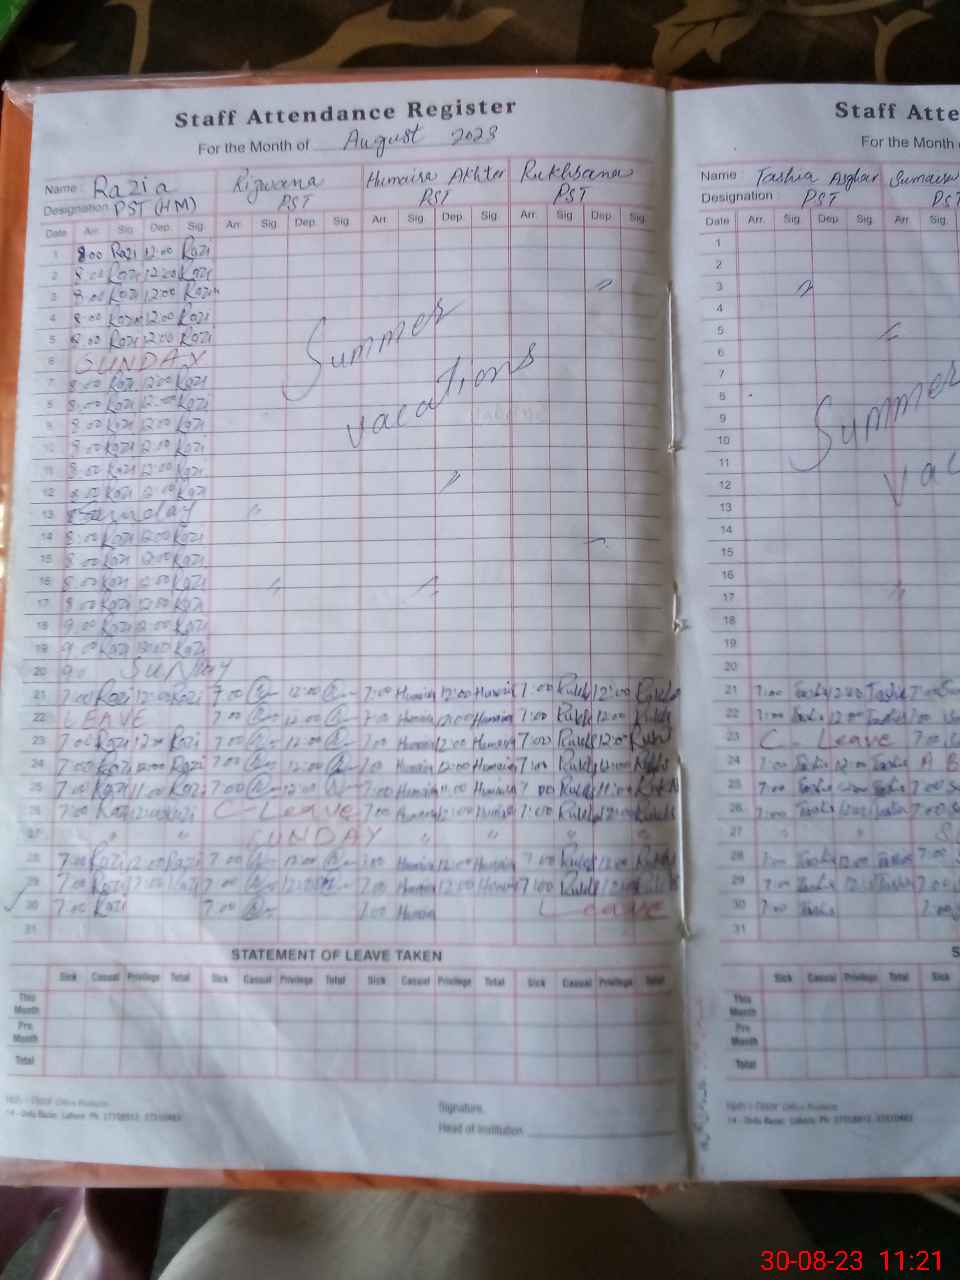 Staff Attendance Register
For the Month of August 2023
Name : Razia Rizwana Humaira Akhter Rukhsana
Designation PST (HM) PST PST PST
Date Arr. Sig. Dep. Sig. Arr. Sig. Dep. Sig. Arr. Sig. Dep. Sig. Arr. Sig. Dep. Sig.
1 8:00 Razi 12:00 Razi
2 8:00 Razi 12:00 Razi
3 8:00 Razi 12:00 Razi
4 8:00 Razi 12:00 Razi
5 8:00 Razi 12:00 Razi
6 SUNDAY
7 8:00 Razi 12:00 Razi
8 8:00 Razi 12:00 Razi
9 8:00 Razi 12:00 Razi
10 8:00 Razi 12:00 Razi
11 8:00 Razi 12:00 Razi
12 8:00 Razi 12:00 Razi
13 Sunday
14 8:00 Razi 12:00 Razi
15 8:00 Razi 12:00 Razi
16 8:00 Razi 12:00 Razi
17 8:00 Razi 12:00 Razi
18 9:00 Razi 12:00 Razi
19 9:00 Razi 12:00 Razi
20 Sunday
Summer
vacations
21 7:00 Razi 12:00 Razi 7:00 12:00 7:00 Humaira 12:00 Humaira 7:00 Rukh 12:00
22 LEAVE 7:00 12:00 7:00 Humaira 12:00 Humaira 7:00 Rukh 12:00 Rukh
23 7:00 Razi 12:00 Razi 7:00 12:00 7:00 Humaira 12:00 Humaira 7:00 Rukh 12:00 Rukh
24 7:00 Razi 12:00 Razi 7:00 12:00 7:00 Humaira 12:00 Humaira 7:00 Rukh 12:00
25 7:00 Razi 11:00 Razi 7:00 12:00 7:00 Humaira 11:00 Humaira 7:00 Rukh 11:00
26 7:00 Razi C - Leave 7:00 Humaira 12:00 7:00 Rukh 12:00
27 " " SUNDAY " " " "
28 7:00 Razi 12:00 Razi 7:00 12:00 7:00 Humaira 12:00 Humaira 7:00 Rukh 12:00
29 7:00 7:00 12:00 7:00 Humaira 12:00 7:00 Rukh
30 7:00 Razi 7:00 7:00 Humaira Leave
31
STATEMENT OF LEAVE TAKEN
Sick Casual Privilege Total Sick Casual Privilege Total Sick Casual Privilege Total Sick Casual Privilege Total
This Month
Pre Month
Total
14 - Urdu Bazar, Lahore. Ph:
Signature.
Head of Institution
Staff Atte
For the Month
Name : Tashia Asghar Sumaira
Designation PST PST
Date Arr. Sig. Dep. Sig. Arr. Sig.
1
2
3
4
5
6
7
8
9
10
11
12
13
14
15
16
17
18
19
20
Summer
vac
21 7:00 12:00
22 7:00 12:00
23 C - Leave 7:00
24 7:00 12:00 A B
25 7:00 7:00
26 7:00 7:00
27 " " " S
28 7:00 12:00 7:00
29 7:00 7:00
30 7:00
31
S
Sick Casual Privilege Total Sick
This Month
Pre Month
Total
14 - Urdu Bazar, Lahore. Ph:
30-08-23 11:21